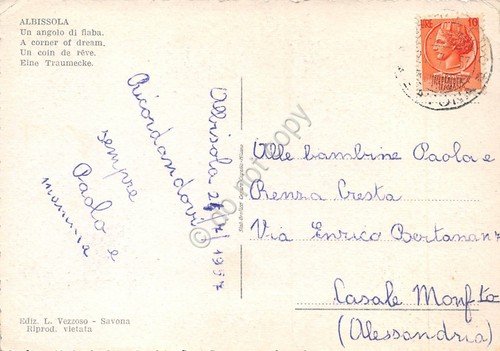 ALBISSOLA
Un angolo di fiaba.
A corner of dream.
Un coin de rêve.
Eine Traumecke.
LIRE 10
Albisola - 1957
Ricordandovi
sempre
Paolo e
mamma
Alle bambine Paola e
Renza Cresta
Via Enrico Bertana
Casale Monf.to
(Alessandria)
Ediz. L. Vezzoso - Savona
Riprod. vietata
do not copy